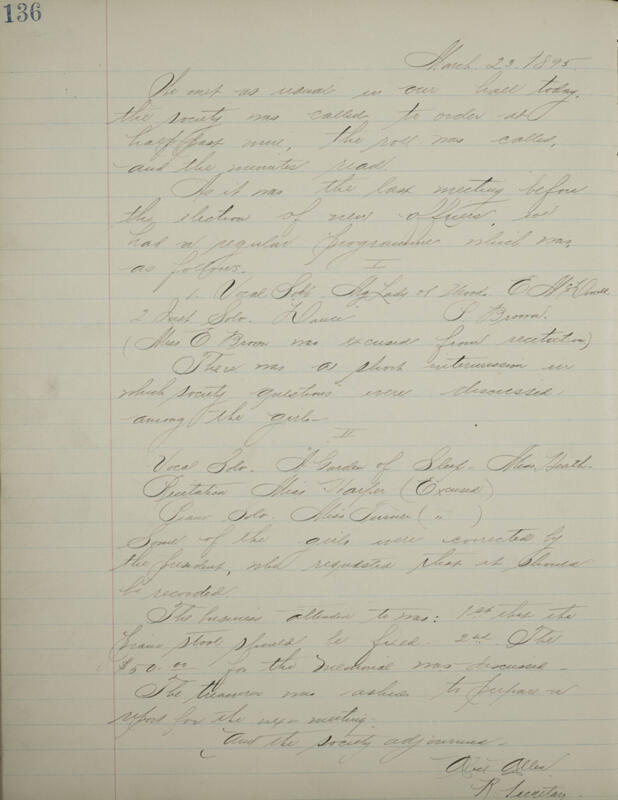 136
March 23 1895
We met as usual in our hall today,
the society was called to order at
half past nine, the roll was called,
and the minutes read.
As it was the last meeting before
the election of new officers, we
had a regular programme which was
as follows.
I
1. Vocal Solo. My Lady of Moods. E. McDowell
2 Inst. Solo. Dance S Brown.
(Miss E Brown was excused from recitation)
There was a short intermission in
which society questions were discussed
among the girls
II
Vocal Solo. A Garden of Sleep - Miss Heath.
Recitation Miss Harper (Excused)
Piano Solo. Miss Turner ( " )
Some of the girls were corrected by
the president, who requested that it should
be recorded.
The business attended to was: 1st that the
piano stool should be fixed. 2nd The
$50.00 for the Memorial was discussed -
The treasurer was asked to prepare a
report for the next meeting.
And the society adjourned -
Allen
R. Secretary